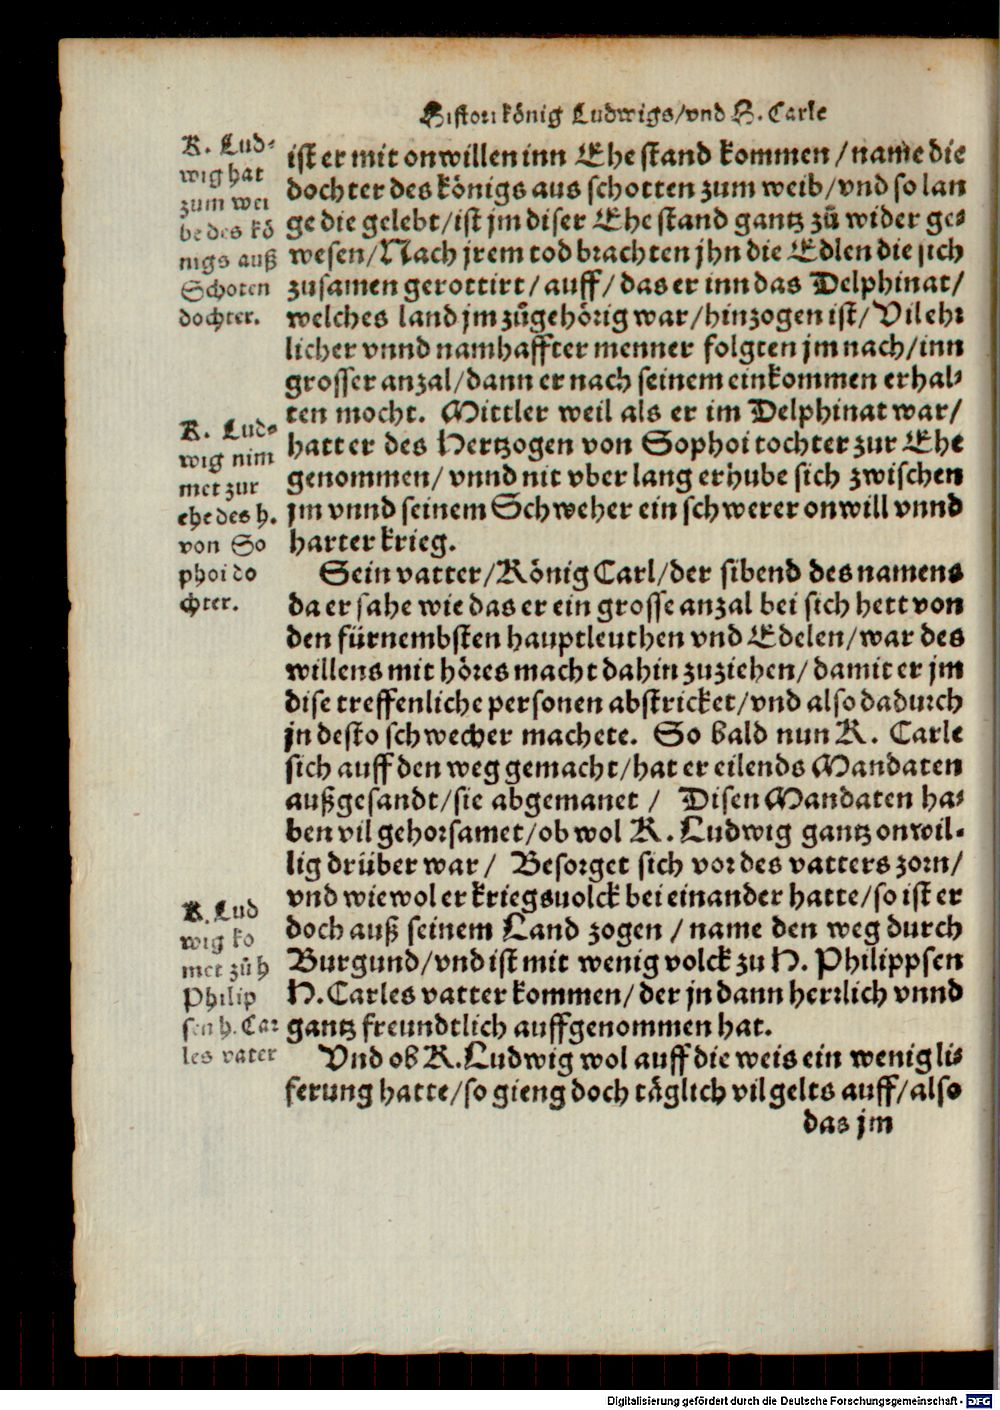 Histori König Ludwigs/vnd H. Carle
K. Lud-
wig hat
zum wei
be des kö
nigs auß
Schoten
dochter.
ist er mit onwillen inn Ehe stand kommen/name die
dochter des Königs aus schotten zum weib/vnd so lan
ge die gelebt/ist jm diser Ehe stand gantz zů wider ge-
wesen/Nach jrem tod brachten jhn die Edlen die sich
zusamen gerottirt/auff/das er inn das Delphinat/
welches land jm zůgehörig war/hinzogen ist/Vil ehr
licher vnnd namhaffter menner folgten jm nach/inn
grosser anzal/dann er nach seinem einkommen erhal-
ten mocht. Mittler weil als er im Delphinat war/
K. Lud-
wig nim
met zur
ehe des h.
von So
phoi do
chter.
hatt er des Hertzogen von Sophoi tochter zur Ehe
genommen/vnnd nit vber lang erhube sich zwischen
jm vnnd seinem Schweher ein schwerer onwill vnnd
harter krieg.
Sein vatter/König Carl/der sibend des namens
da er sahe wie das er ein grosse anzal bei sich hett von
den fürnembsten hauptleuthen vnd Edelen/war des
willens mit höres macht dahin zuziehen/damit er jm
dise treffenliche personen abstricket/vnd also dadurch
jn desto schwecher machete. So bald nun K. Carle
sich auff den weg gemacht/hat er eilends Mandaten
außgesandt/sie abgemanet / Disen Mandaten ha-
ben vil gehorsamet/ob wol K. Ludwig gantz onwil-
lig drüber war/ Besorget sich vor des vatters zorn/
vnd wiewol er kriegsuolck bei einander hatte/so ist er
K. Lud
wig ko
met zů h
Philip
sen h. Car
les vater
doch auß seinem Land zogen / name den weg durch
Burgund/vnd ist mit wenig volck zu H. Philippsen
H. Carles vatter kommen/der jn dann herrlich vnnd
gantz freundtlich auffgenommen hat.
Vnd ob K. Ludwig wol auff die weis ein wenig li-
ferung hatte/so gieng doch täglich vil gelts auff/also
das jm
Digitalisierung gefördert durch die Deutsche Forschungsgemeinschaft - DFG